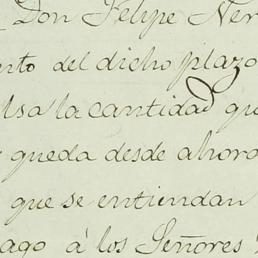 Don Felipe Ner
del dicho plazo
la cantidad qu
queda desde ahora
que se entiendan
á los Señores